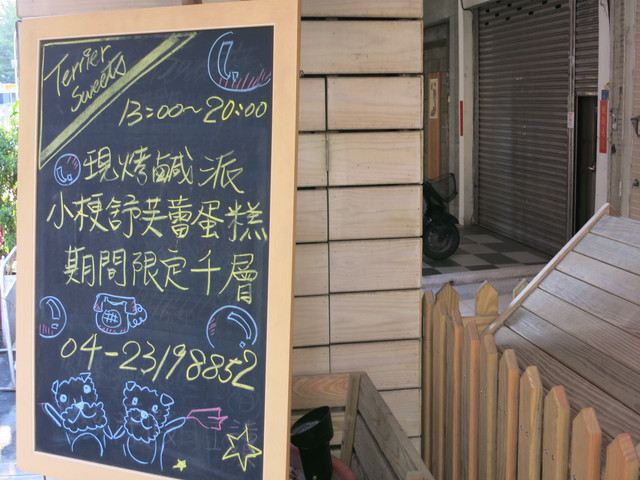 Terrier
Sweets
13:00~20:00
現烤鹹派
小梗舒芙蕾蛋糕
期間限定千層
04-23198852